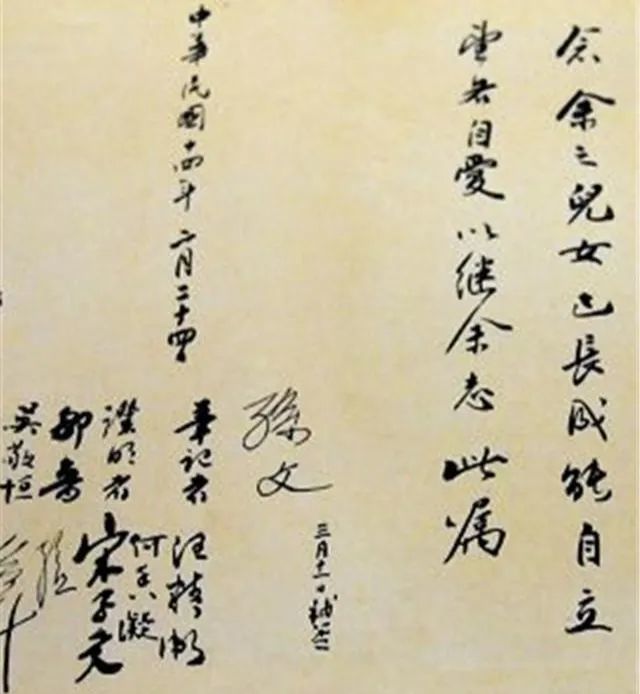 念余之兒女已長成能自立
望各自愛以继余志此嘱
孫文
三月十一日補簽
中華民國十四年二月二十四
筆記者 汪精衛
證明者 何香凝
宋子文
鄒魯
孫
吳敬恒